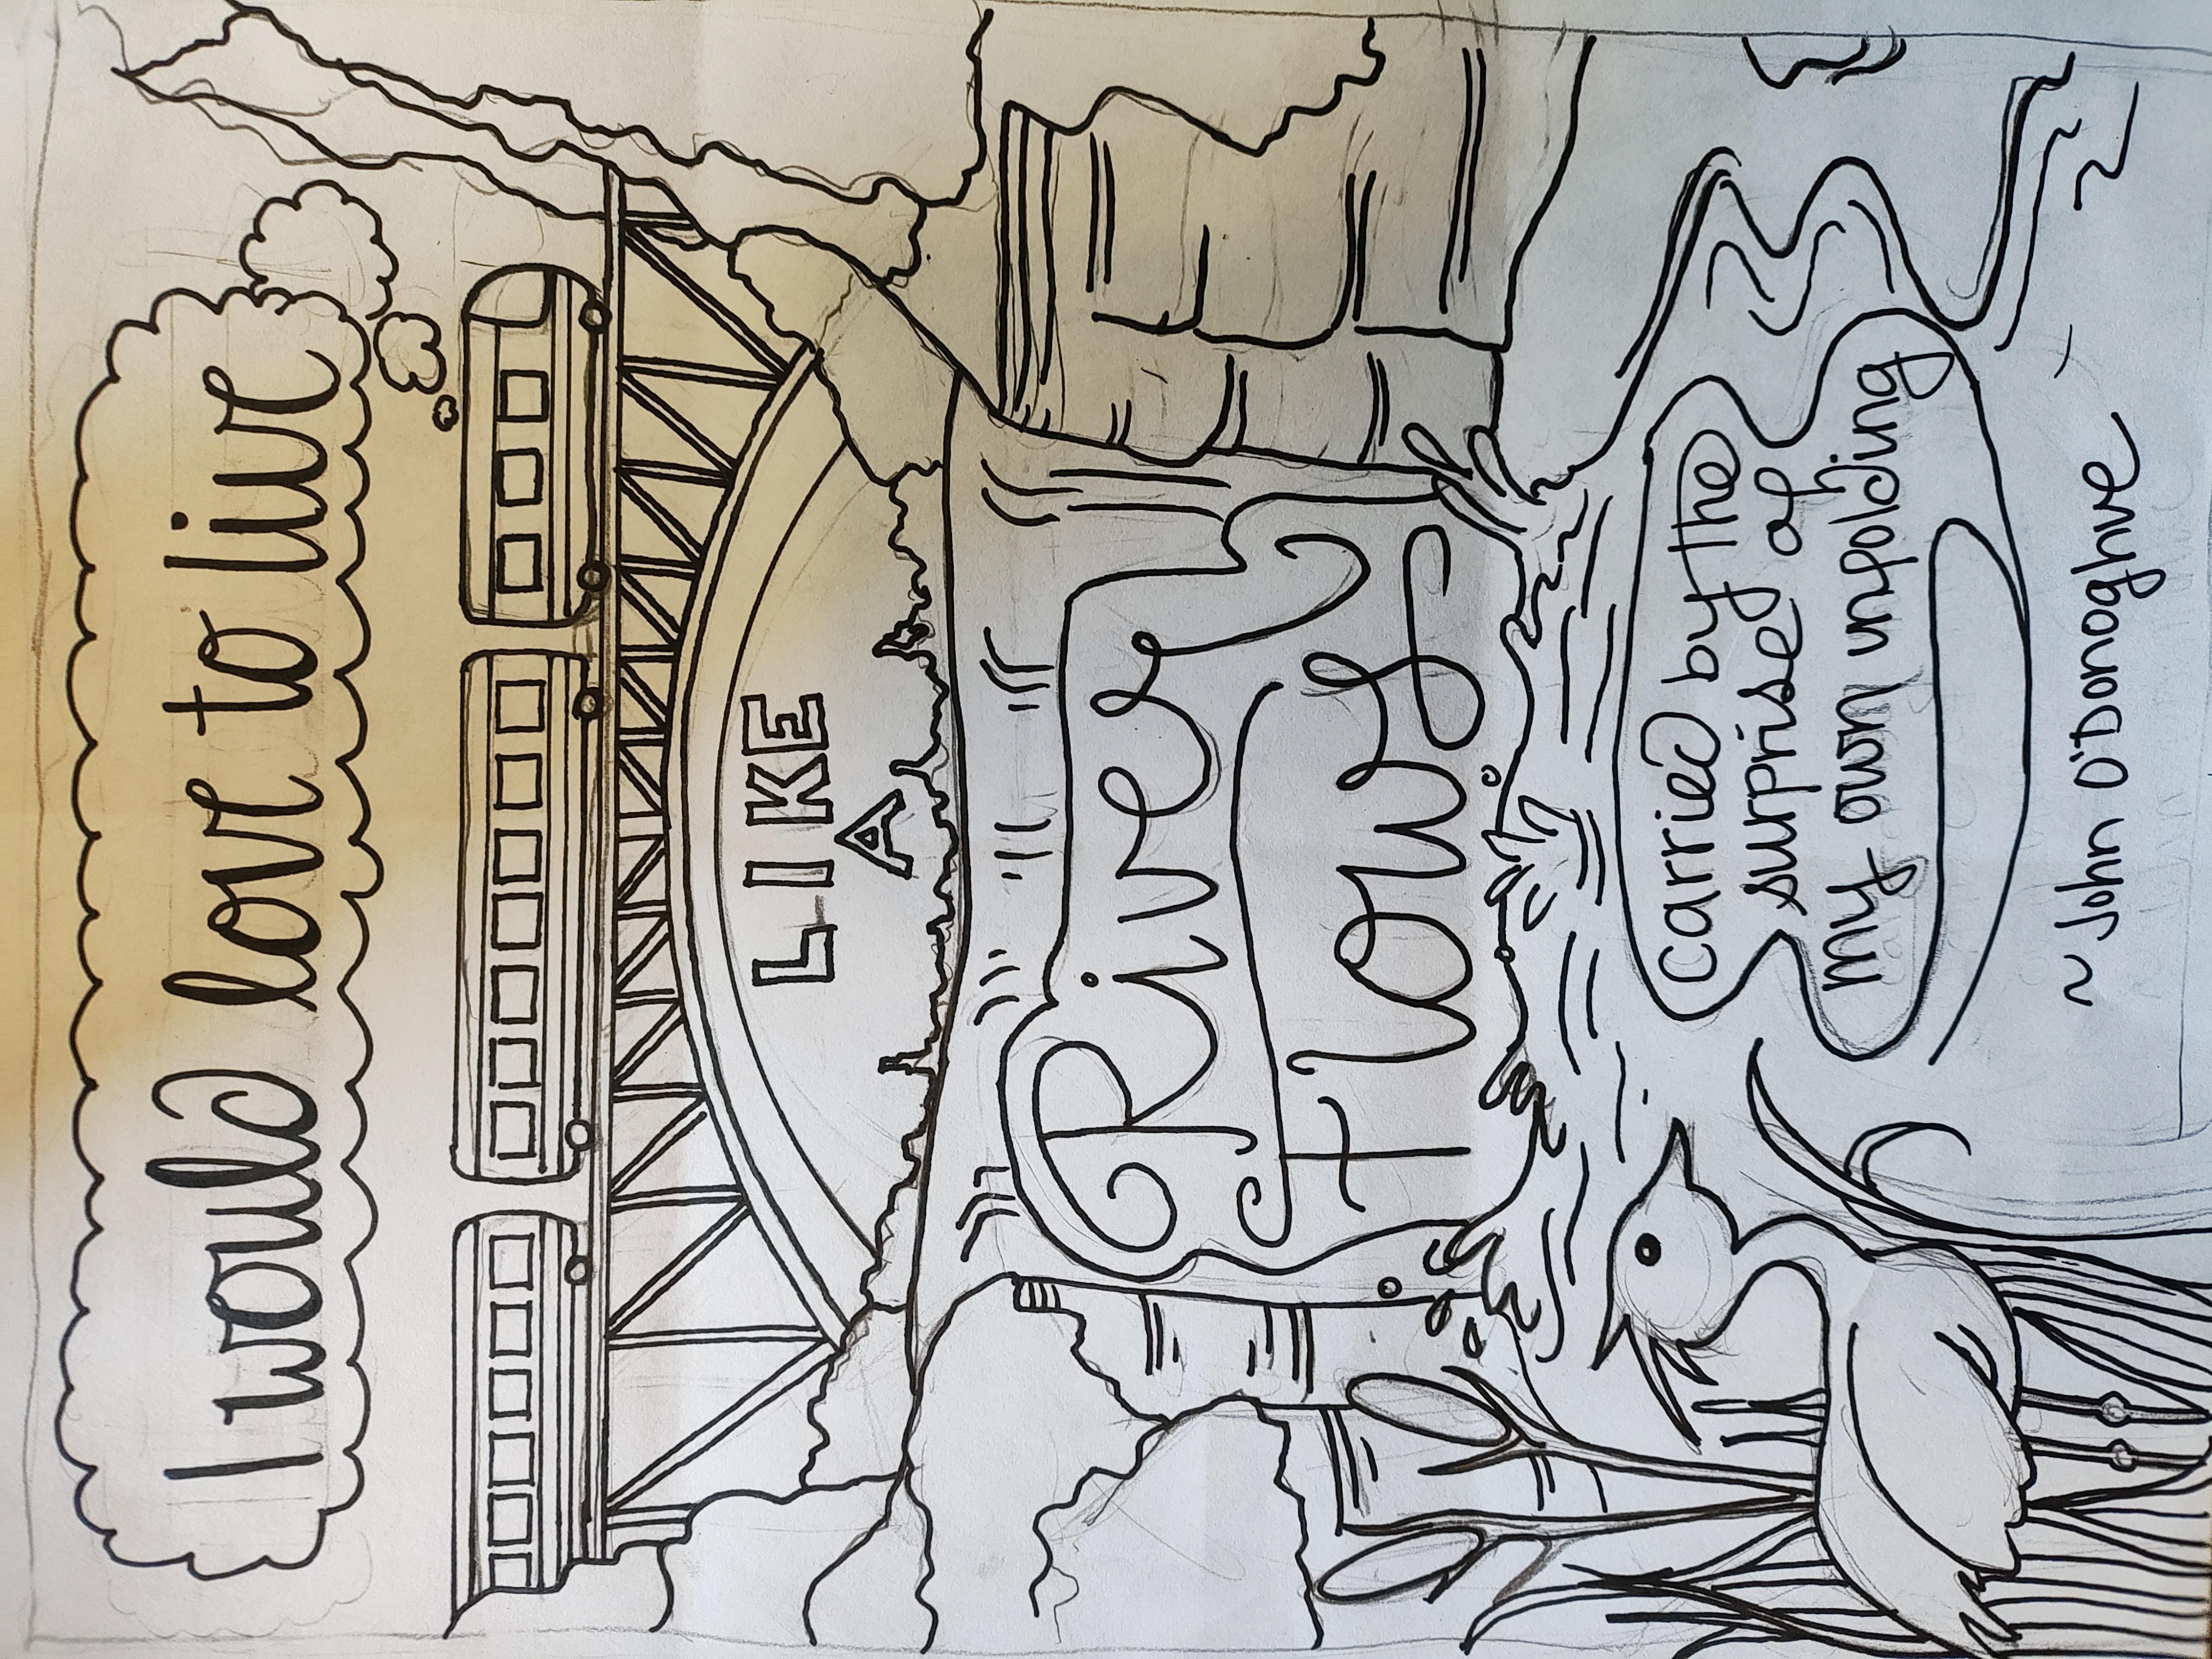 I would love to live
LIKE
A
River
flows
carried by the
surprise of
my own unfolding
~ John O'Donoghue